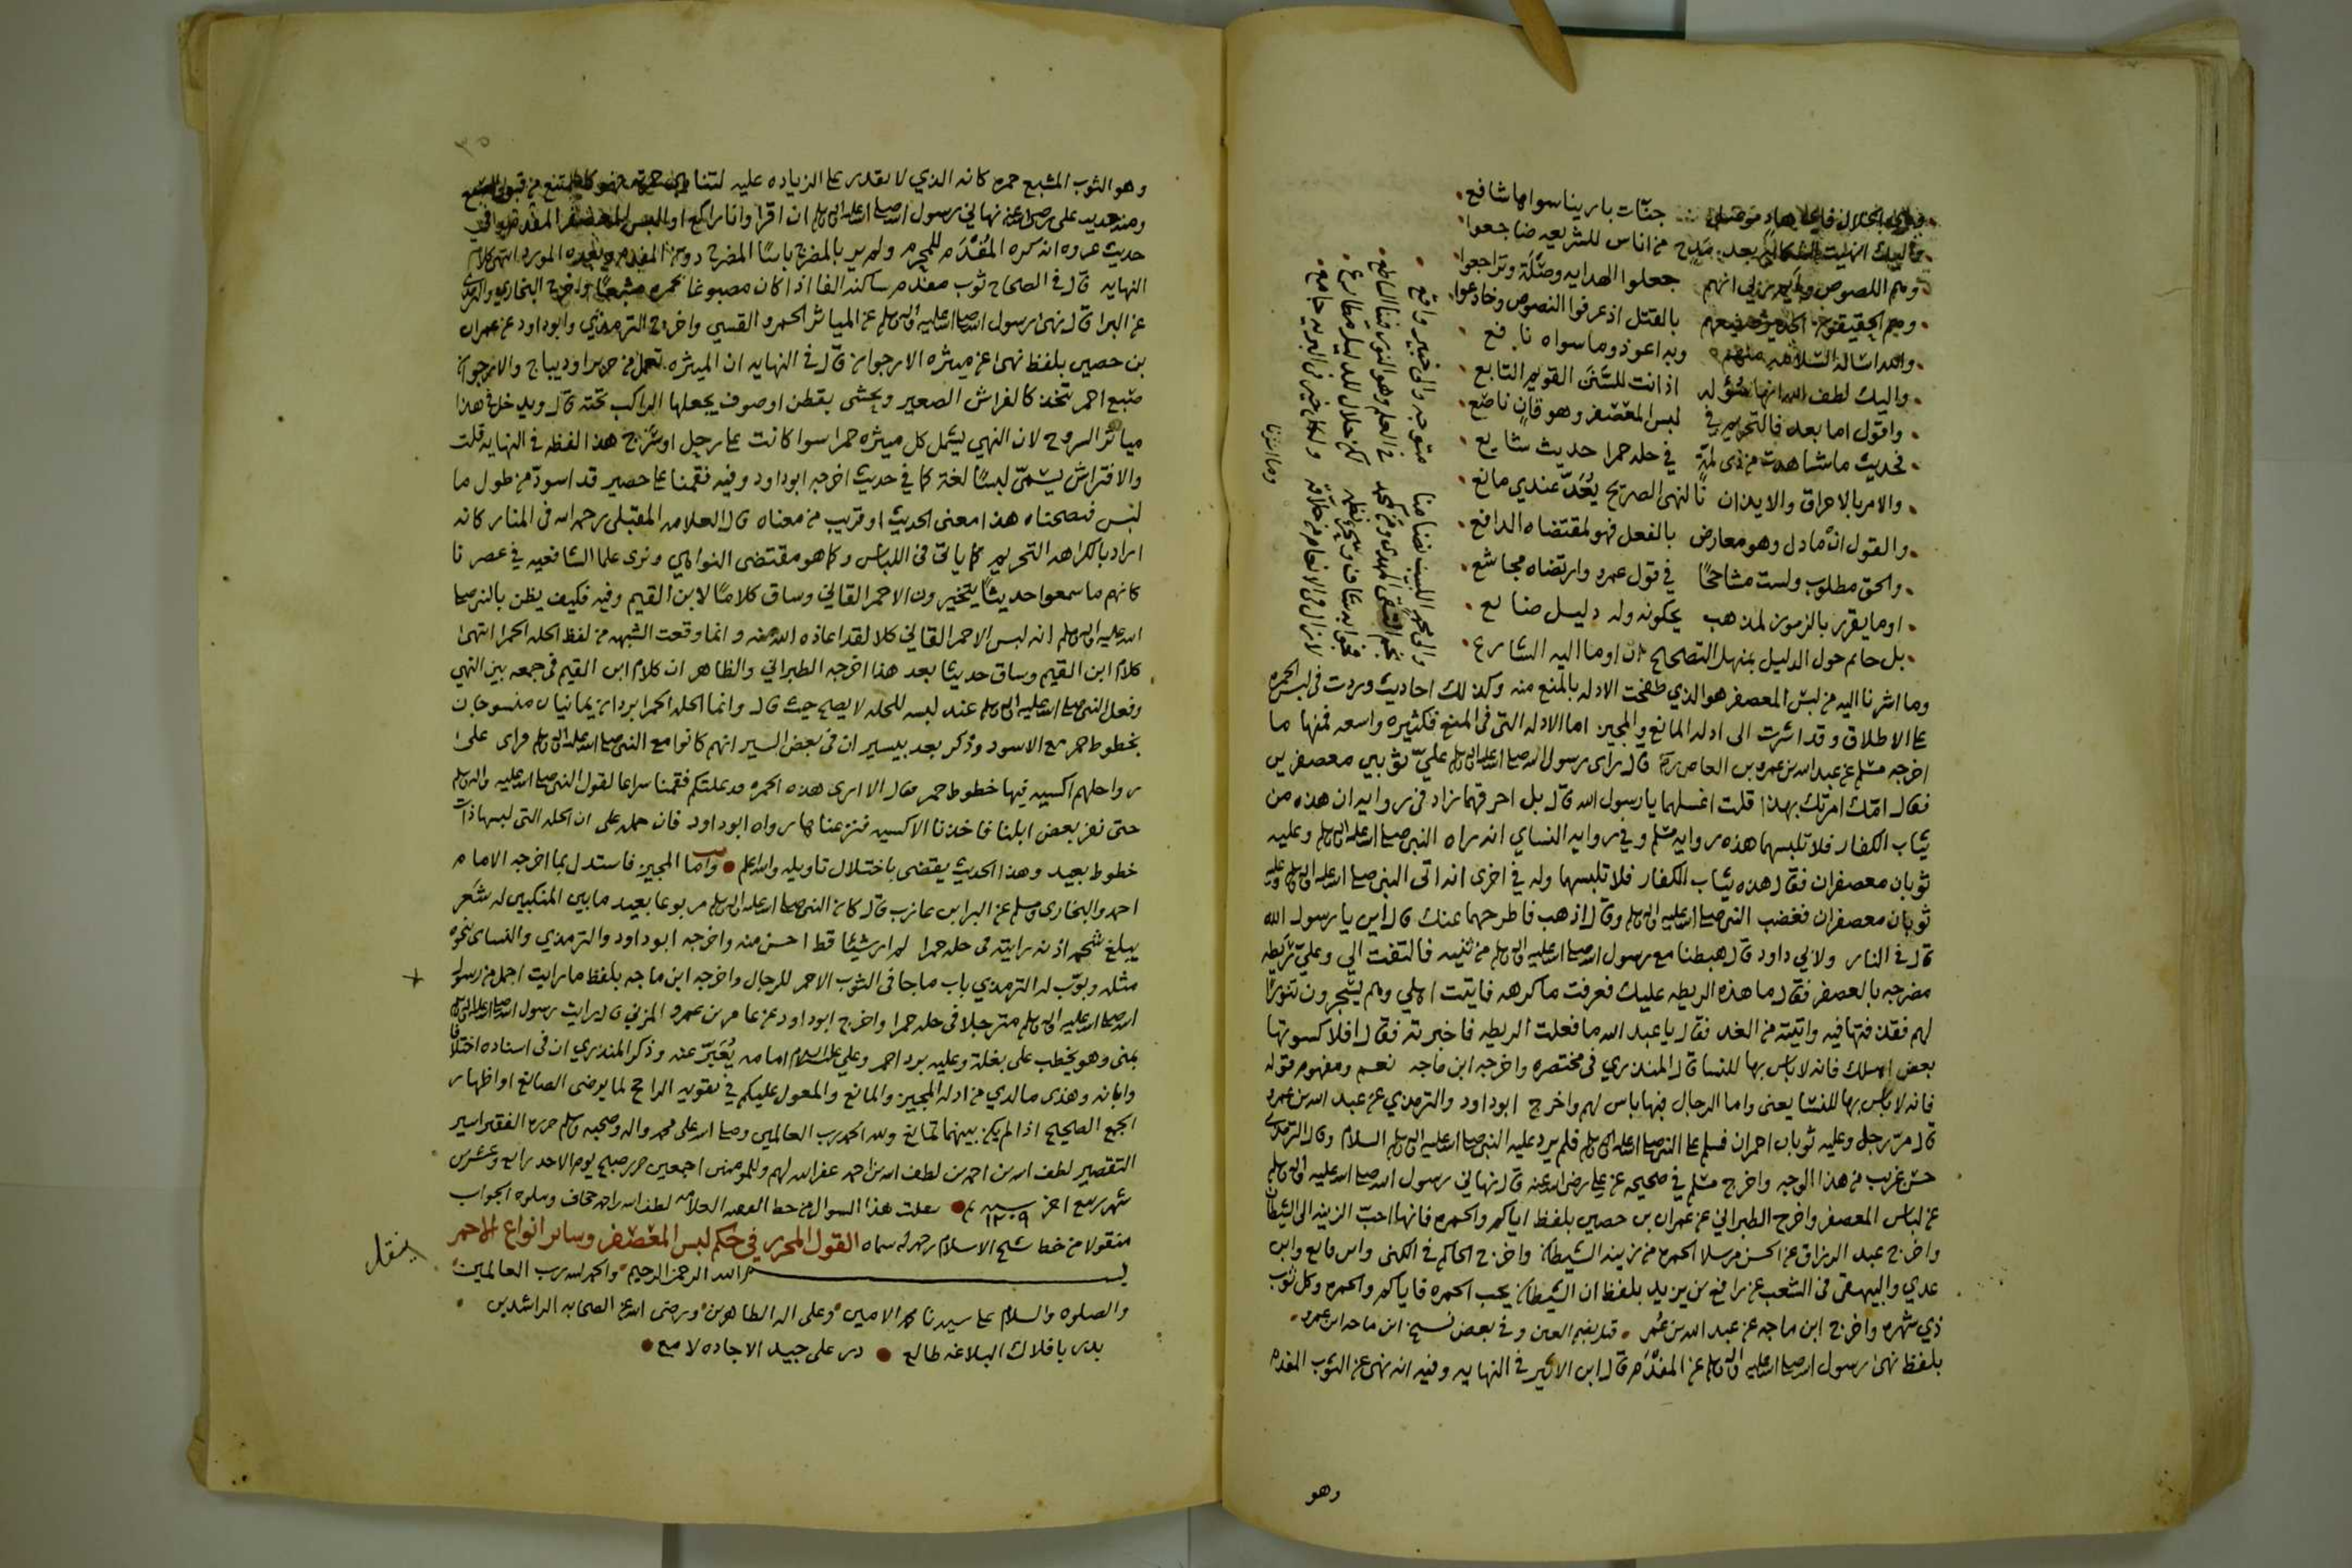 جنّات بارينا سواها شافع
من اناس للشريعه ضاجعوا
وهم اللصوص انهم جعلوا الهدايه وضلّة وتراجعوا
بالقتل اذ عرفوا النصوص وخادعوا
والله اساله السلامه منهم وبه اعوذ وما سواه نافع
واليك لطف الله اذ انت للسّنَن القويم التابع
واقول اما بعد فالتحريم في لبس المعصفر وهو قانٍ ناصع
فحديث ما شاهدت من ذي لمّةٍ في حله حمرا حديث شايع
والامر بالاحراق والايذان نًا لنهى الصريح يُعَدّ عندي مانع
والقول انْ ما دل وهو معارض بالفعل فهو لمقتضاه الدافع
والحق مطلوب ولست مشاححًا في قول عمرو وارتضاه مجاشع
اوما يقرر بالرسون لمذهب يحكونه وله دليل ضايع
بل حايم حول الدليل بمنهل التصحيح ان اوما اليه الشارع
وما اشرنا
وما اشرنا اليه من لبس المعصفر هو الذي طفحت الادله بالمنع منه وكذلك احاديث وردت في لبس الحمره
على الاطلاق وقد اشرت الى ادله المانع والمجيز اما الادله التي في المنع فكثيره واسعه فمنها ما
اخرجه مسلم عن عبد الله بن عمرو بن العاص قال راى رسول الله صلى الله عليه واله وسلم عليّ ثوبين معصفرين
فقال امّك امرتك بهذا قلت اغسلهما يا رسول الله قال بل احرقهما زاد في روايه ان هذه من
ثياب الكفار فلا تلبسهما هذه روايه مسلم وفي روايه النساي انه راه النبي صلى الله عليه واله وسلم وعليه
ثوبان معصفران فقال هذه ثياب الكفار فلا تلبسها وله في اخرى انه اتى النبي صلى الله عليه واله وسلم وعليه
ثوبان معصفران فغضب النبي صلى الله عليه واله وسلم وقال اذهب فاطرحهما عنك قال اين يا رسول الله
قال في النار ولابي داود قال هبطنا مع رسول الله صلى الله عليه واله وسلم من ثنيه فالتفت الي وعليّ رَيطه
مضرجه بالعصفر فقال ما هذه الريطه عليك فعرفت ما كره فاتيت اهلي وهم يسجرون تنورًا
لهم فقذفتها فيه واتيته من الغد فقال يا عبد الله ما فعلت الريطه فاخبرته فقال افلا كسوتها
بعض اهلك فانه لا باس بها للنسا قال المنذري في مختصره واخرجه ابن ماجه نعم ومفهوم قوله
فانه لا باس بها للنسا يعنى واما الرجال فبها باس لهم واخرج ابو داود والترمذي عن عبد الله بن عمرو
قال مرّ رجل وعليه ثوبان احمران فسلم على النبي صلى الله عليه واله وسلم فلم يرد عليه النبي صلى الله عليه واله وسلم السلام وقال الترمذي
حسن غريب من هذا الوجه واخرج مسلم في صحيحه عن علي رضي الله عنه قال نهاني رسول الله صلى الله عليه واله وسلم
عن لباس المعصفر واخرج الطبراني عن عمران بن حصين بلفظ اياكم والحمره فانها احبّ الزينه الى الشيطان
واخرج عبد الرزاق عن الحسن مرسلا الحمره من زينه الشيطان واخرج الحاكم في الكنى وابن قانع وابن
عدي والبيهقي في الشعب عن رافع بن يزيد بلفظ ان الشيطان يحب الحمره فاياكم والحمره وكل ثوب
ذي شهره واخرج ابن ماجه عن عبد الله بن عُمر قيل بضم العين وفي بعض نسخ ابن ماجه ابن عمرو
بلفظ نهى رسول الله صلى الله عليه واله وسلم عن المفدَّم قال ابن الاثير في النهايه وفيه انه نهى عن الثوب المفدم
وهو
وهو الثوب المشبع حمره كانه الذي لا يقدر على الزياده عليه لتناهي حمرته فهو كالممتنع من قبول الصبغ
ومنه حديث علي رضي الله عنه نهاني رسول الله صلى الله عليه واله وسلم ان اقرا وانا راكع او البس المعصفر المفدم وفي
حديث عروه انه كره المُفَدَّم للمحرم ولم ير بالمضرج باسًا المضرج دون المفدم وبعده المورد انتهى كلام
النهايه قال في الصحاح ثوب مفدم ساكنه الفا اذا كان مصبوغا بحمره مشبعًا واخرج البخاري والترمذي
عن البرا قال نهى رسول الله صلى الله عليه واله وسلم عن المياثر الحمر والقسي واخرج الترمذي وابو داود عن عمران
بن حصين بلفظ نهى عن ميثره الارجوان قال في النهايه ان الميثره تعمل من حرير او ديباج والارجوان
صبغ احمر تتخذ كالفراش الصغير ويحشى بقطن او صوف يجعلها الراكب تحته قال ويدخل في هذا
مياثر السروج لان النهي يشمل كل ميثره حمرا سوا كانت على رحل او سَرْج هذا لفظه في النهايه قلت
والافتراش يسمّى لبسًا لغة كما في حديث اخرجه ابو داود وفيه فقمنا على حصير قد اسودّ من طول ما
لبس فنضحناه هذا معنى الحديث او قريب من معناه قال العلامه المقبلي رحمه الله في المنار كانه
اراد بالكراهه التحريم كما ياتي في اللباس وكما هو مقتضى النواهي ونرى علما الشافعيه في عصرنا
كانهم ما سمعوا حديثًا يتخيرون الاحمر القاني وساق كلامًا لابن القيم وفيه فكيف يظن بالنبي صلى
الله عليه واله وسلم انه لبس الاحمر القاني كلا لقد اعاذه الله منه وانما وقعت الشبهه من لفظ الحله الحمرا انتهى
كلام ابن القيم وساق حديثا بعد هذا اخرجه الطبراني والظاهر ان كلام ابن القيم في جمعه بين النهي
وفعل النبي صلى الله عليه واله وسلم عند لبسه للحله لا يصح حيث قال وانما الحله الحمرا بردان يمانيان منسوجان
بخطوط حمر مع الاسود وذكر بعد بيسير ان في بعض السير انهم كانوا مع النبي صلى الله عليه واله وسلم فراى على
رواحلهم اكسيه فيها خطوط حمر فقال الا ارى هذه الحمره قد علتكم فقمنا سراعا لقول النبي صلى الله عليه واله وسلم
حتى نفر بعض ابلنا فاخذنا الاكسيه فنزعناها رواه ابو داود فان حمله على ان الحله التي لبسها ذات
خطوط بعيد وهذا الحديث يقضي باختلال تاويله والله اعلم واما المجيز فاستدل بما اخرجه الامام
احمد والبخاري ومسلم عن البرا بن عازب قال كان النبي صلى الله عليه واله وسلم مربوعا بعيد ما بين المنكبين له شعَر
يبلغ شحمه اذنه رايته في حله حمرا لم ار شيئا قط احسن منه واخرجه ابو داود والترمذي والنساي نحوه
مثله وبوّب له الترمذي باب ما جا في الثوب الاحمر للرجال واخرجه ابن ماجه بلفظ ما رايت اجمل من رسول
الله صلى الله عليه واله وسلم مترجلا في حله حمرا واخرج ابو داود عن عامر بن عمرو المزني قال رايت رسول الله صلى الله عليه واله وسلم
بمنى وهو يخطب على بغلة وعليه برد احمر وعلي عليه السلام امامه يُعَبِّر عنه وذكر المنذري ان في اسناده اختلافا
وابانه وهذى ما لدي من ادله المجيز والمانع والمعول عليكم في تقويه الراجح لما يوضى الصانع او اظهار
الجمع الصحيح اذا لم يكن بينهما تمانع ولله الحمد رب العالمين وصلى الله على محمد واله وصحبه وسلم حرره الفقير اسير
التقصير لطف الله بن احمد بن لطف الله بن احمد غفر الله لهم وللمومنين اجمعين حرر صبح يوم الاحد رابع وعشرين
شهر ربيع اخر سنه ١٢٠٩ نقلت هذا السوال من خط العلامه لطف الله بن احمد جحاف ويتلوه الجواب
منقولا من خط شيخ الاسلام رحمه الله سماه القول المحرر في حكم لبس المعصفر وساير انواع الاحمر
بسم الله الرحمن الرحيم والحمد لله رب العالمين
والصلوه والسلام على سيدنا محمد الامين وعلى اله الطاهرين ورضى الله عن الصحابه الراشدين
بدر بافلاك البلاغه طالع در على جيد الاجاده لامع
ينقل